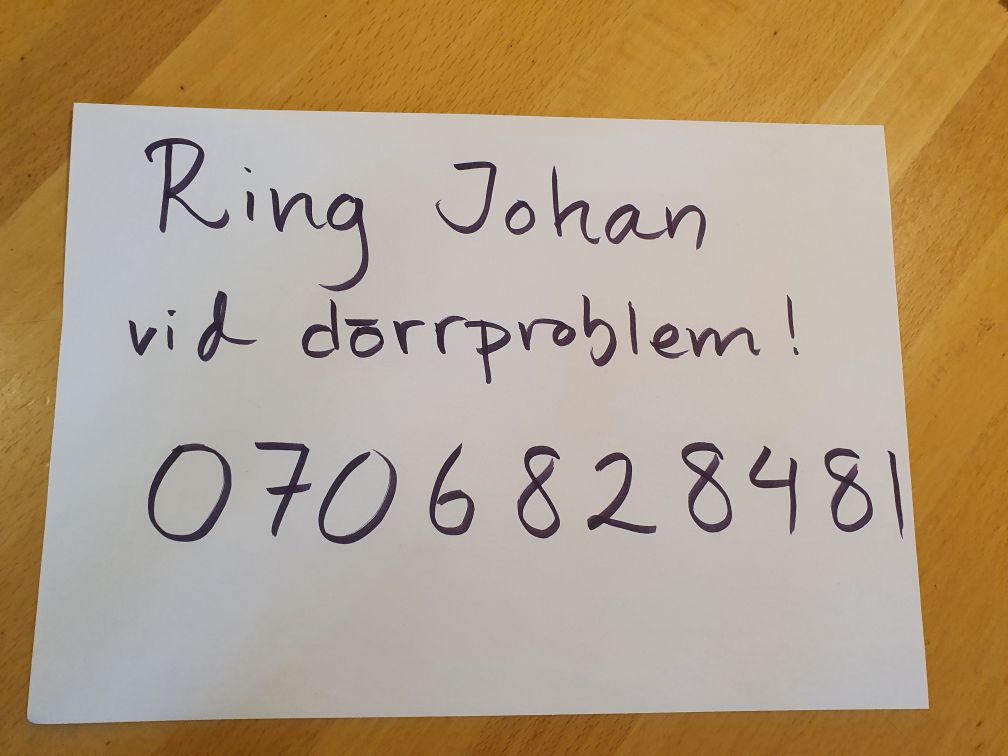 Ring Johan
vid dörrproblem!
0706828481